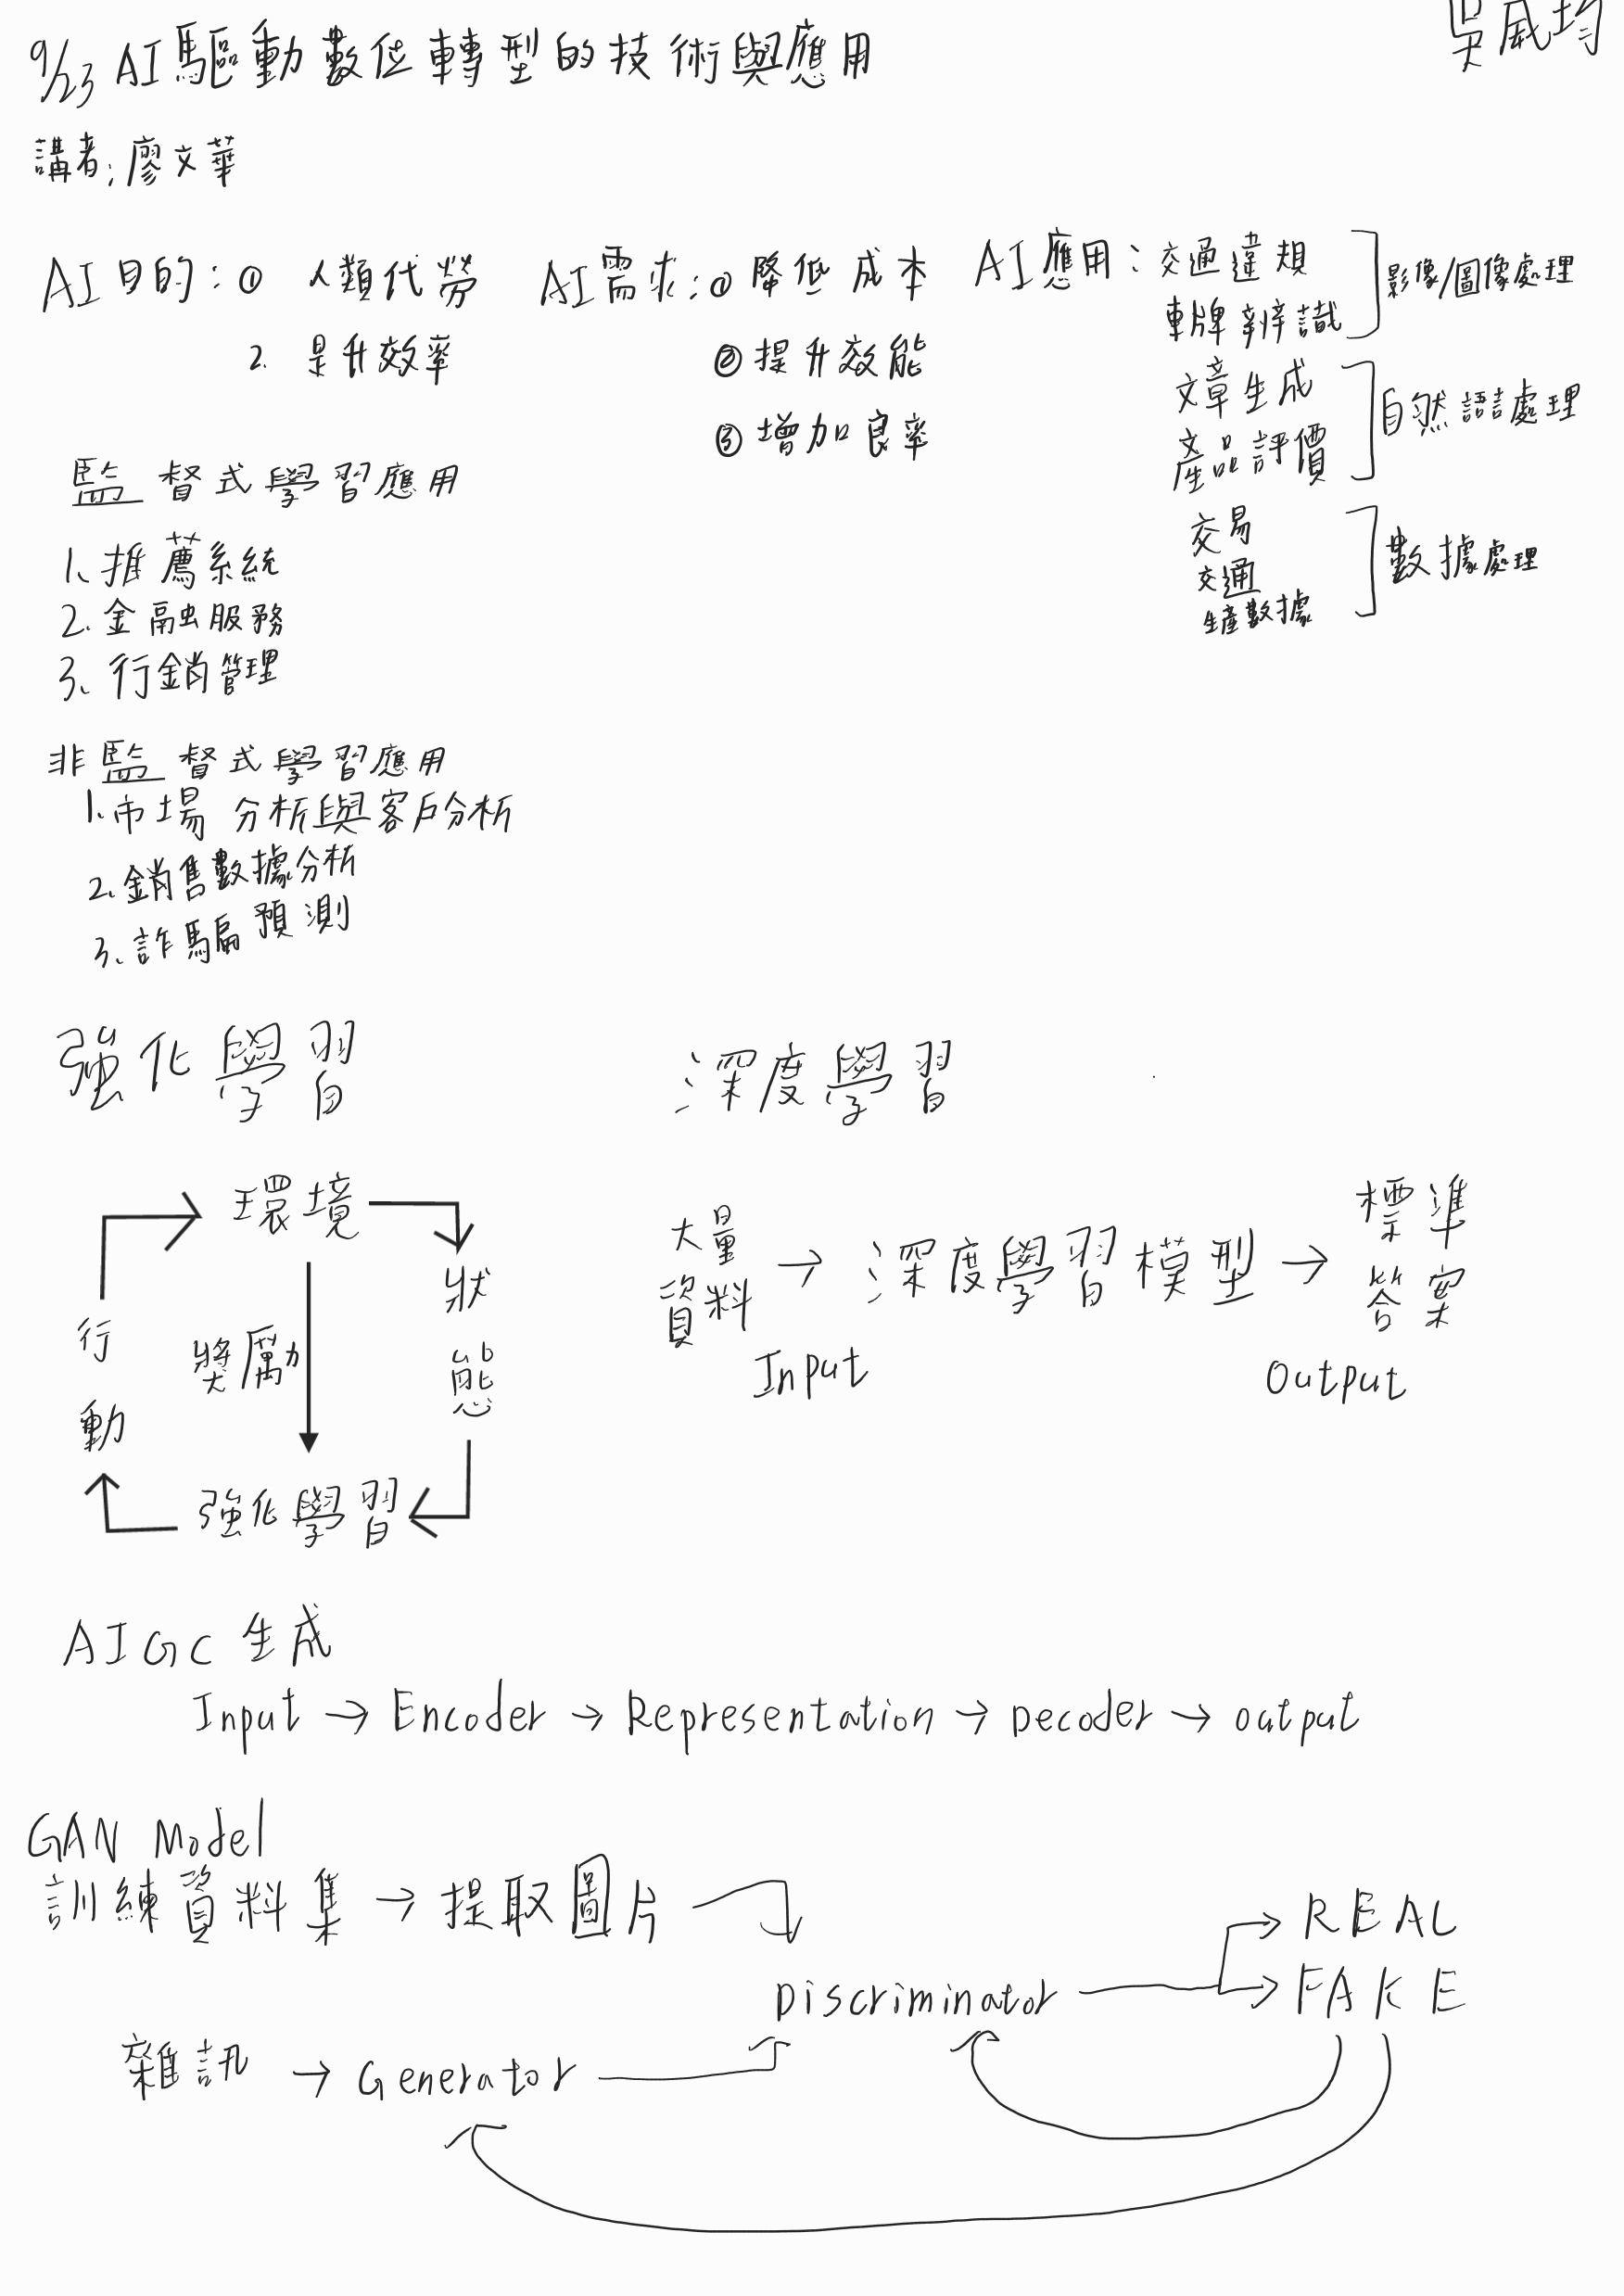 吳威均
9/23 AI驅動數位轉型的技術與應用
講者:廖文華
AI目的:① 人類代勞
2. 是升效率
AI需求:① 降低成本
② 提升效能
③ 增加良率
AI應用:交通違規
車牌辨識
影像/圖像處理
文章生成
產品評價
自然語言處理
交易
交通
生產數據
數據處理
監督式學習應用
1.推薦系統
2.金融服務
3.行銷管理
非監督式學習應用
1.市場分析與客戶分析
2.銷售數據分析
3.詐騙預測
強化學習
環境
狀態
獎厲力
行動
強化學習
深度學習
大量資料 → 深度學習模型 → 標準答案
Input
Output
AIGC 生成
Input → Encoder → Representation → Decoder → output
GAN Model
訓練資料集 → 提取圖片
Discriminator
REAL
FAKE
雜訊 → Generator